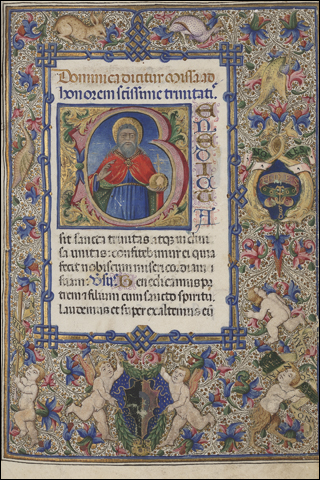 Dominica dicitur missa ad
honorem sctissime trinitati.
BENEDICTA
sit sancta trinitas atq; indiui
sa unitas: confitebimur ei quia
fecit nobiscum misericordiam
suam: Vsus. Benedicamus p
trem et filium cum sancto spiritu.
Laudemus et super exaltemus eū